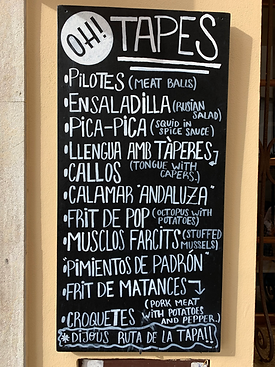 OH! TAPES
• PILOTES (MEAT BALLS)
• ENSALADILLA (RUSIAN SALAD)
• PICA-PICA (SQUID IN SPICE SAUCE)
• LLENGUA AMB TÀPERES
• CALLOS (TONGUE WITH CAPERS)
• CALAMAR "ANDALUZA"
• FRIT DE POP (OCTOPUS WITH POTATOES)
• MUSCLOS FARCITS (STUFFED MUSSELS)
• "PIMIENTOS DE PADRÓN"
• FRIT DE MATANCES
(PORK MEAT WITH POTATOES AND PEPPER.)
• CROQUETES
* DIJOUS RUTA DE LA TAPA!!